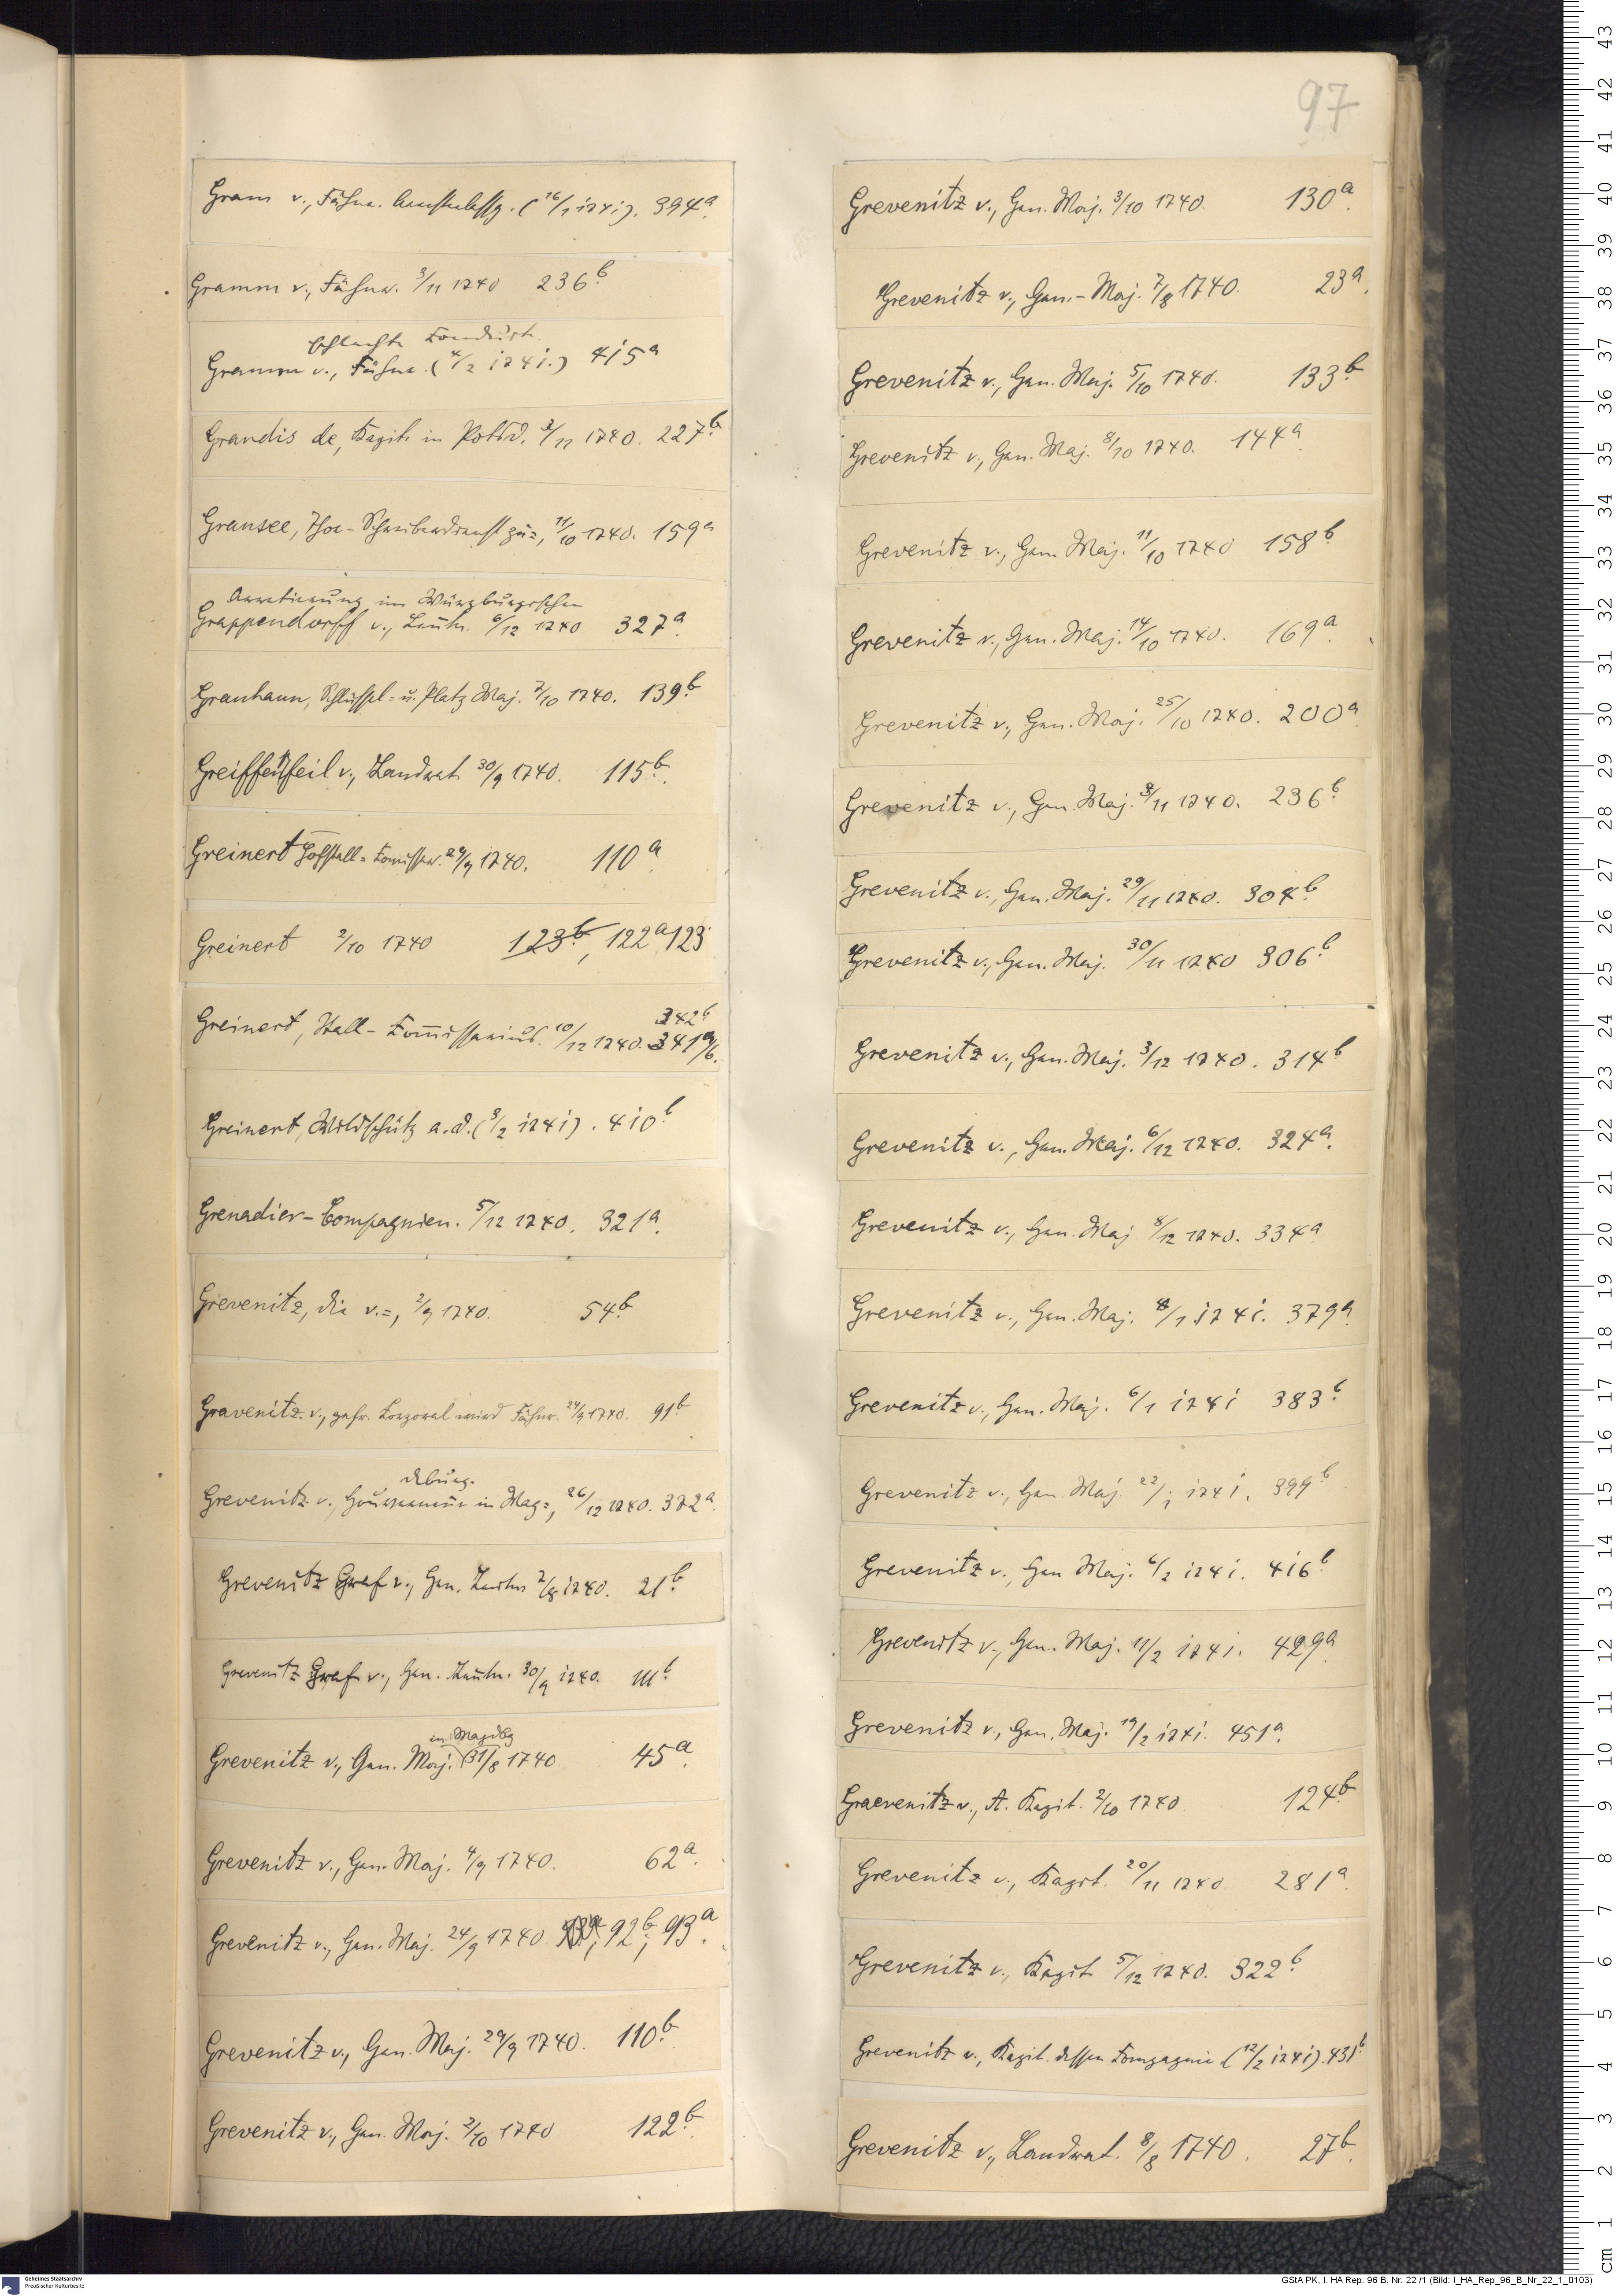 97
Gram v., Fähnr. (16/1 1741). 394a.
Gramm v., Fähnr. 3/11 1740 236b.
schlechte Conduit
Gramm v., Fähnr. (4/2 1741.) 415a
Grandis de, Kapit. in Potsd. 3/11 1740. 227b.
Gransee, Thor-Schreiberdienst zu=, 11/10 1740. 159a
Arretierung im Würzburgischen
Grappendorff v., Leutn. 6/12 1740 327a.
Granhaun, Schlüssel- u. Platz Maj. 7/10 1740. 139b.
Greiffenfeil v., Landrat 30/9 1740. 115b.
Greinert Hofstall-Komissar. 29/9 1740. 110a.
Greinert 2/10 1740 123b, 122a 123
342b
Greinert, Stall-Kom̅issarius. 10/12 1740. 341a/b.
Greinert, Wildschütz a.d. (3/2 1741). 410b
Grenadier-Compagnien. 5/12 1740. 321a.
Grevenitz, die v.=, 2/9 1740. 54b.
Gravenitz v., gefr. Korporal wird Fähnr. 24/9 1740. 91b
deburg.
Grevenitz v., Gouverneur in Mag=, 26/12 1740. 372a.
Grevenitz Graf v., Gen. Leutn. 7/8 1740. 21b.
Grevenitz Graf v., Gen. Leutn. 30/9 1740. 111b.
in Magdbg
Grevenitz v., Gen. Maj. (31/8 1740 45a.
Grevenitz v., Gen. Maj. 4/9 1740. 62a.
Grevenitz v., Gen. Maj. 24/9 1740 92b, 93a.
Grevenitz v., Gen. Maj. 29/9 1740. 110b.
Grevenitz v., Gen. Maj. 2/10 1740 122b.
Grevenitz v., Gen. Maj. 3/10 1740. 130a.
Grevenitz v., Gen.-Maj. 7/8 1740. 23a.
Grevenitz v., Gen. Maj. 5/10 1740. 133b.
Grevenitz v., Gen. Maj. 8/10 1740. 144a.
Grevenitz v., Gen. Maj. 11/10 1740 158b
Grevenitz v., Gen. Maj. 14/10 1740. 169a.
Grevenitz v., Gen. Maj. 25/10 1740. 200a.
Grevenitz v., Gen. Maj. 3/11 1740. 236b.
Grevenitz v., Gen. Maj. 29/11 1740. 304b.
Grevenitz v., Gen. Maj. 30/11 1740 306b.
Grevenitz v., Gen. Maj. 3/12 1740. 314b
Grevenitz v., Gen. Maj. 6/12 1740. 324a.
Grevenitz v., Gen. Maj 8/12 1740. 334a.
Grevenitz v., Gen. Maj. 4/1 1741. 379a.
Grevenitz v., Gen. Maj. 6/1 1741 383b.
Grevenitz v., Gen. Maj. 22/1 1741. 399b.
Grevenitz v., Gen Maj. 6/2 1741. 416b.
Grevenitz v., Gen. Maj. 11/2 1741. 429a.
Grevenitz v., Gen. Maj. 19/2 1741. 451a.
Graevenitz v., A. Kapit. 2/10 1740 124b.
Grevenitz v., Kapit. 20/11 1740. 281a.
Grevenitz v., Kapit 5/12 1740. 322b.
Grevenitz v., Kapit. dessen Kompagnie (12/2 1741). 431b.
Grevenitz v., Landrat. 8/8 1740. 27b.
Geheimes Staatsarchiv
Preußischer Kulturbesitz
GStA PK, I. HA Rep. 96 B, Nr. 22 /1 (Bild: I_HA_Rep_96_B_Nr_22_1_0103)